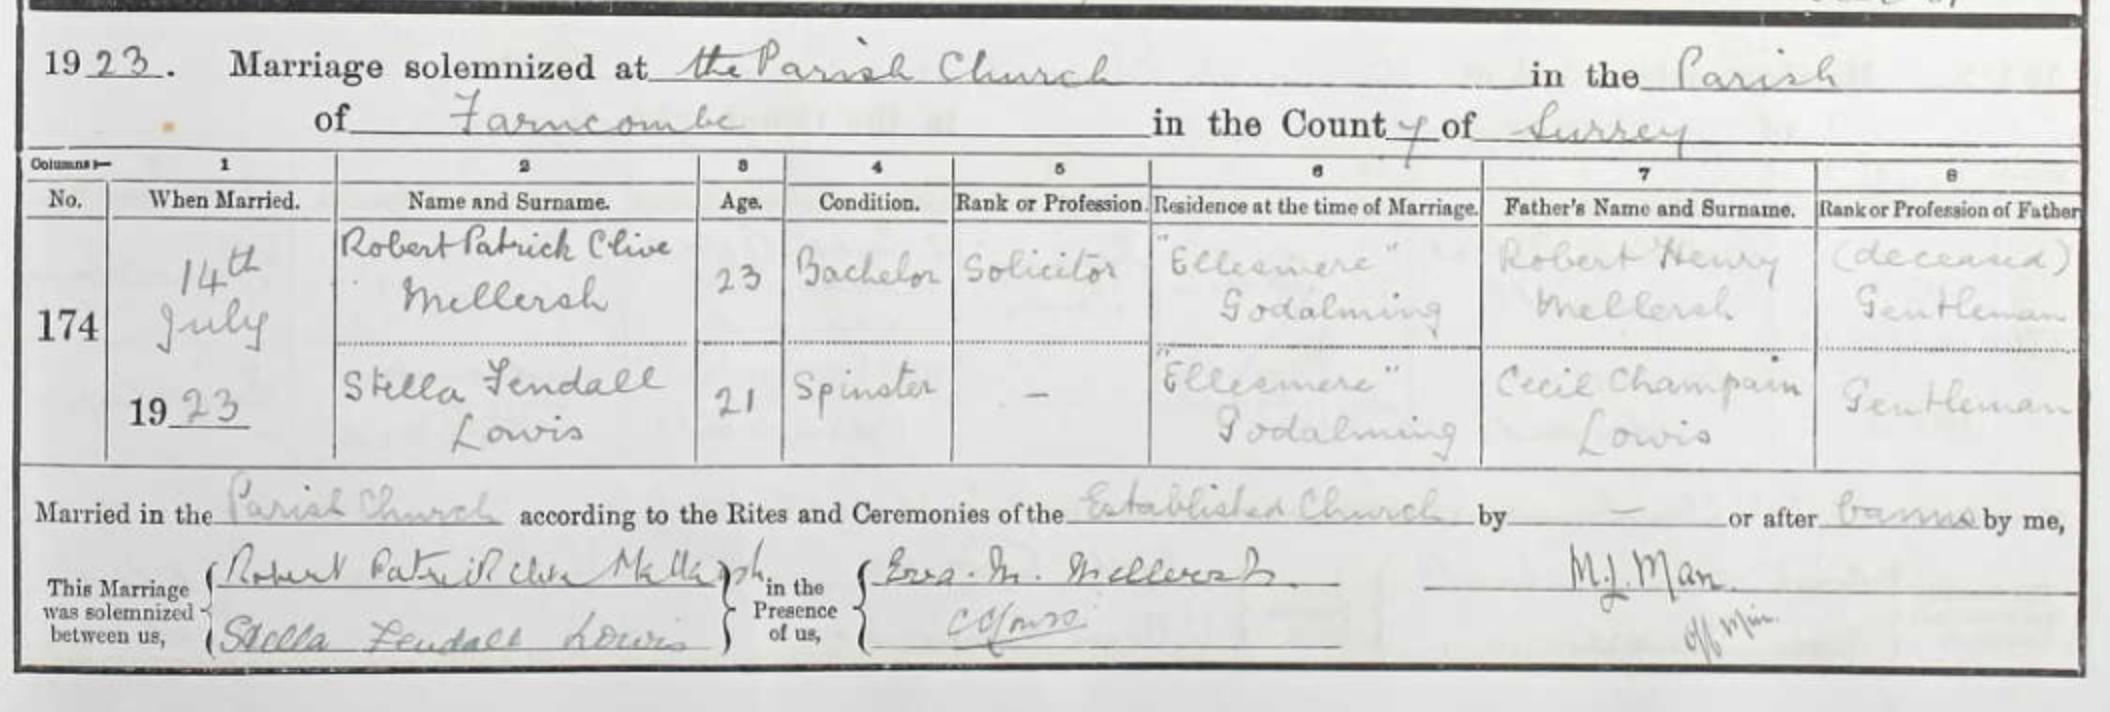 1923. Marriage solemnized at the Parish Church in the Parish
of Farncombe in the County of Surrey
Columns:— 1 2 3 4 5 6 7 8
No. When Married. Name and Surname. Age. Condition. Rank or Profession. Residence at the time of Marriage. Father's Name and Surname. Rank or Profession of Father
174 14th July 1923
Robert Patrick Clive Mellersh 23 Bachelor Solicitor "Ellesmere" Godalming Robert Henry Mellersh (deceased) Gentleman
Stella Fendall Lowis 21 Spinster — "Ellesmere" Godalming Cecil Champain Lowis Gentleman
Married in the Parish Church according to the Rites and Ceremonies of the Established Church by — or after banns by me,
This Marriage was solemnized between us, Robert Patrick Clive Mellersh Stella Fendall Lowis in the Presence of us, M. Mellersh M.J. Man. Off Min.